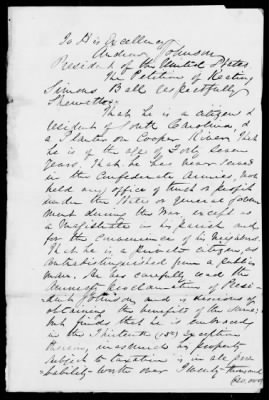 To His Excellency
Andrew Johnson
President of the United States
The Petition of Keating
Simons Ball respectfully
Sheweth
That he is a citizen &
resident of South Carolina, &
a Planter on Cooper River, that
he is of the age of Forty seven
years. That he has never served
in the Confederate Armies, nor
held any office of trust or profit
under the State or general Govern
ment during the War, except as
a Magistrate in his parish and
for the convenience of his neighbors,
That he is a private citizen, as
contradistinguished from a public
man. He has carefully read the
Amnesty proclamation of Presi-
dent Johnson, and is desirous of
obtaining the benefits of the same;
but finds that he is embraced
in the Thirteenth (13th) exception
therein, inasmuch as property
subject to taxation is in all pro
bability worth over Twenty thousand